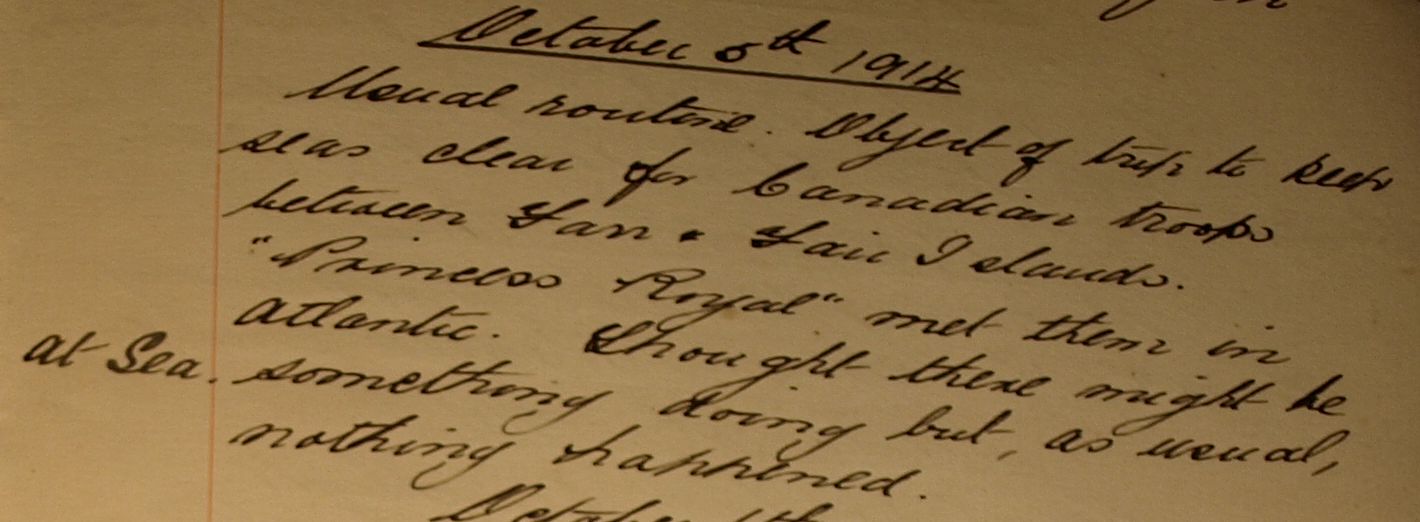 October 5th 1914
Usual routine. Object of trip to keep
seas clear for Canadian troops
between Fan & Fair Islands.
"Princess Royal" met them in
Atlantic. Thought there might be
at Sea. something doing but, as usual,
nothing happened.
October